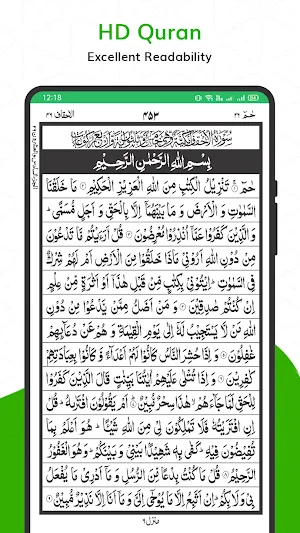 HD Quran
Excellent Readability
12:18
حٰمٓ ٢٦ ٤٥٣ الاحقاف ٤٦
بِسْمِ اللّٰهِ الرَّحْمٰنِ الرَّحِيْمِ
حٰمٓ ۝ تَنْزِيْلُ الْكِتٰبِ مِنَ اللّٰهِ الْعَزِيْزِ الْحَكِيْمِ ۝ مَا خَلَقْنَا
السَّمٰوٰتِ وَ الْاَرْضَ وَ مَا بَيْنَهُمَاۤ اِلَّا بِالْحَقِّ وَ اَجَلٍ مُّسَمًّى ؕ
وَ الَّذِيْنَ كَفَرُوْا عَمَّاۤ اُنْذِرُوْا مُعْرِضُوْنَ ۝ قُلْ اَرَءَيْتُمْ مَّا تَدْعُوْنَ
مِنْ دُوْنِ اللّٰهِ اَرُوْنِيْ مَاذَا خَلَقُوْا مِنَ الْاَرْضِ اَمْ لَهُمْ شِرْكٌ
فِي السَّمٰوٰتِ ؕ اِيْتُوْنِيْ بِكِتٰبٍ مِّنْ قَبْلِ هٰذَاۤ اَوْ اَثٰرَةٍ مِّنْ عِلْمٍ
اِنْ كُنْتُمْ صٰدِقِيْنَ ۝ وَ مَنْ اَضَلُّ مِمَّنْ يَّدْعُوْا مِنْ دُوْنِ
اللّٰهِ مَنْ لَّا يَسْتَجِيْبُ لَهٗۤ اِلٰى يَوْمِ الْقِيٰمَةِ وَ هُمْ عَنْ دُعَآئِهِمْ
غٰفِلُوْنَ ۝ وَ اِذَا حُشِرَ النَّاسُ كَانُوْا لَهُمْ اَعْدَآءً وَّ كَانُوْا بِعِبَادَتِهِمْ
كٰفِرِيْنَ ۝ وَ اِذَا تُتْلٰى عَلَيْهِمْ اٰيٰتُنَا بَيِّنٰتٍ قَالَ الَّذِيْنَ كَفَرُوْا
لِلْحَقِّ لَمَّا جَآءَهُمْ ۙ هٰذَا سِحْرٌ مُّبِيْنٌ ۝ اَمْ يَقُوْلُوْنَ افْتَرٰىهُ ؕ قُلْ
اِنِ افْتَرَيْتُهٗ فَلَا تَمْلِكُوْنَ لِيْ مِنَ اللّٰهِ شَيْـًٔا ؕ هُوَ اَعْلَمُ بِمَا
تُفِيْضُوْنَ فِيْهِ ؕ كَفٰى بِهٖ شَهِيْدًۢا بَيْنِيْ وَ بَيْنَكُمْ ؕ وَ هُوَ الْغَفُوْرُ
الرَّحِيْمُ ۝ قُلْ مَا كُنْتُ بِدْعًا مِّنَ الرُّسُلِ وَ مَاۤ اَدْرِيْ مَا يُفْعَلُ
بِيْ وَ لَا بِكُمْ ؕ اِنْ اَتَّبِعُ اِلَّا مَا يُوْحٰۤى اِلَيَّ وَ مَاۤ اَنَا اِلَّا نَذِيْرٌ مُّبِيْنٌ ۝
منزل ٦